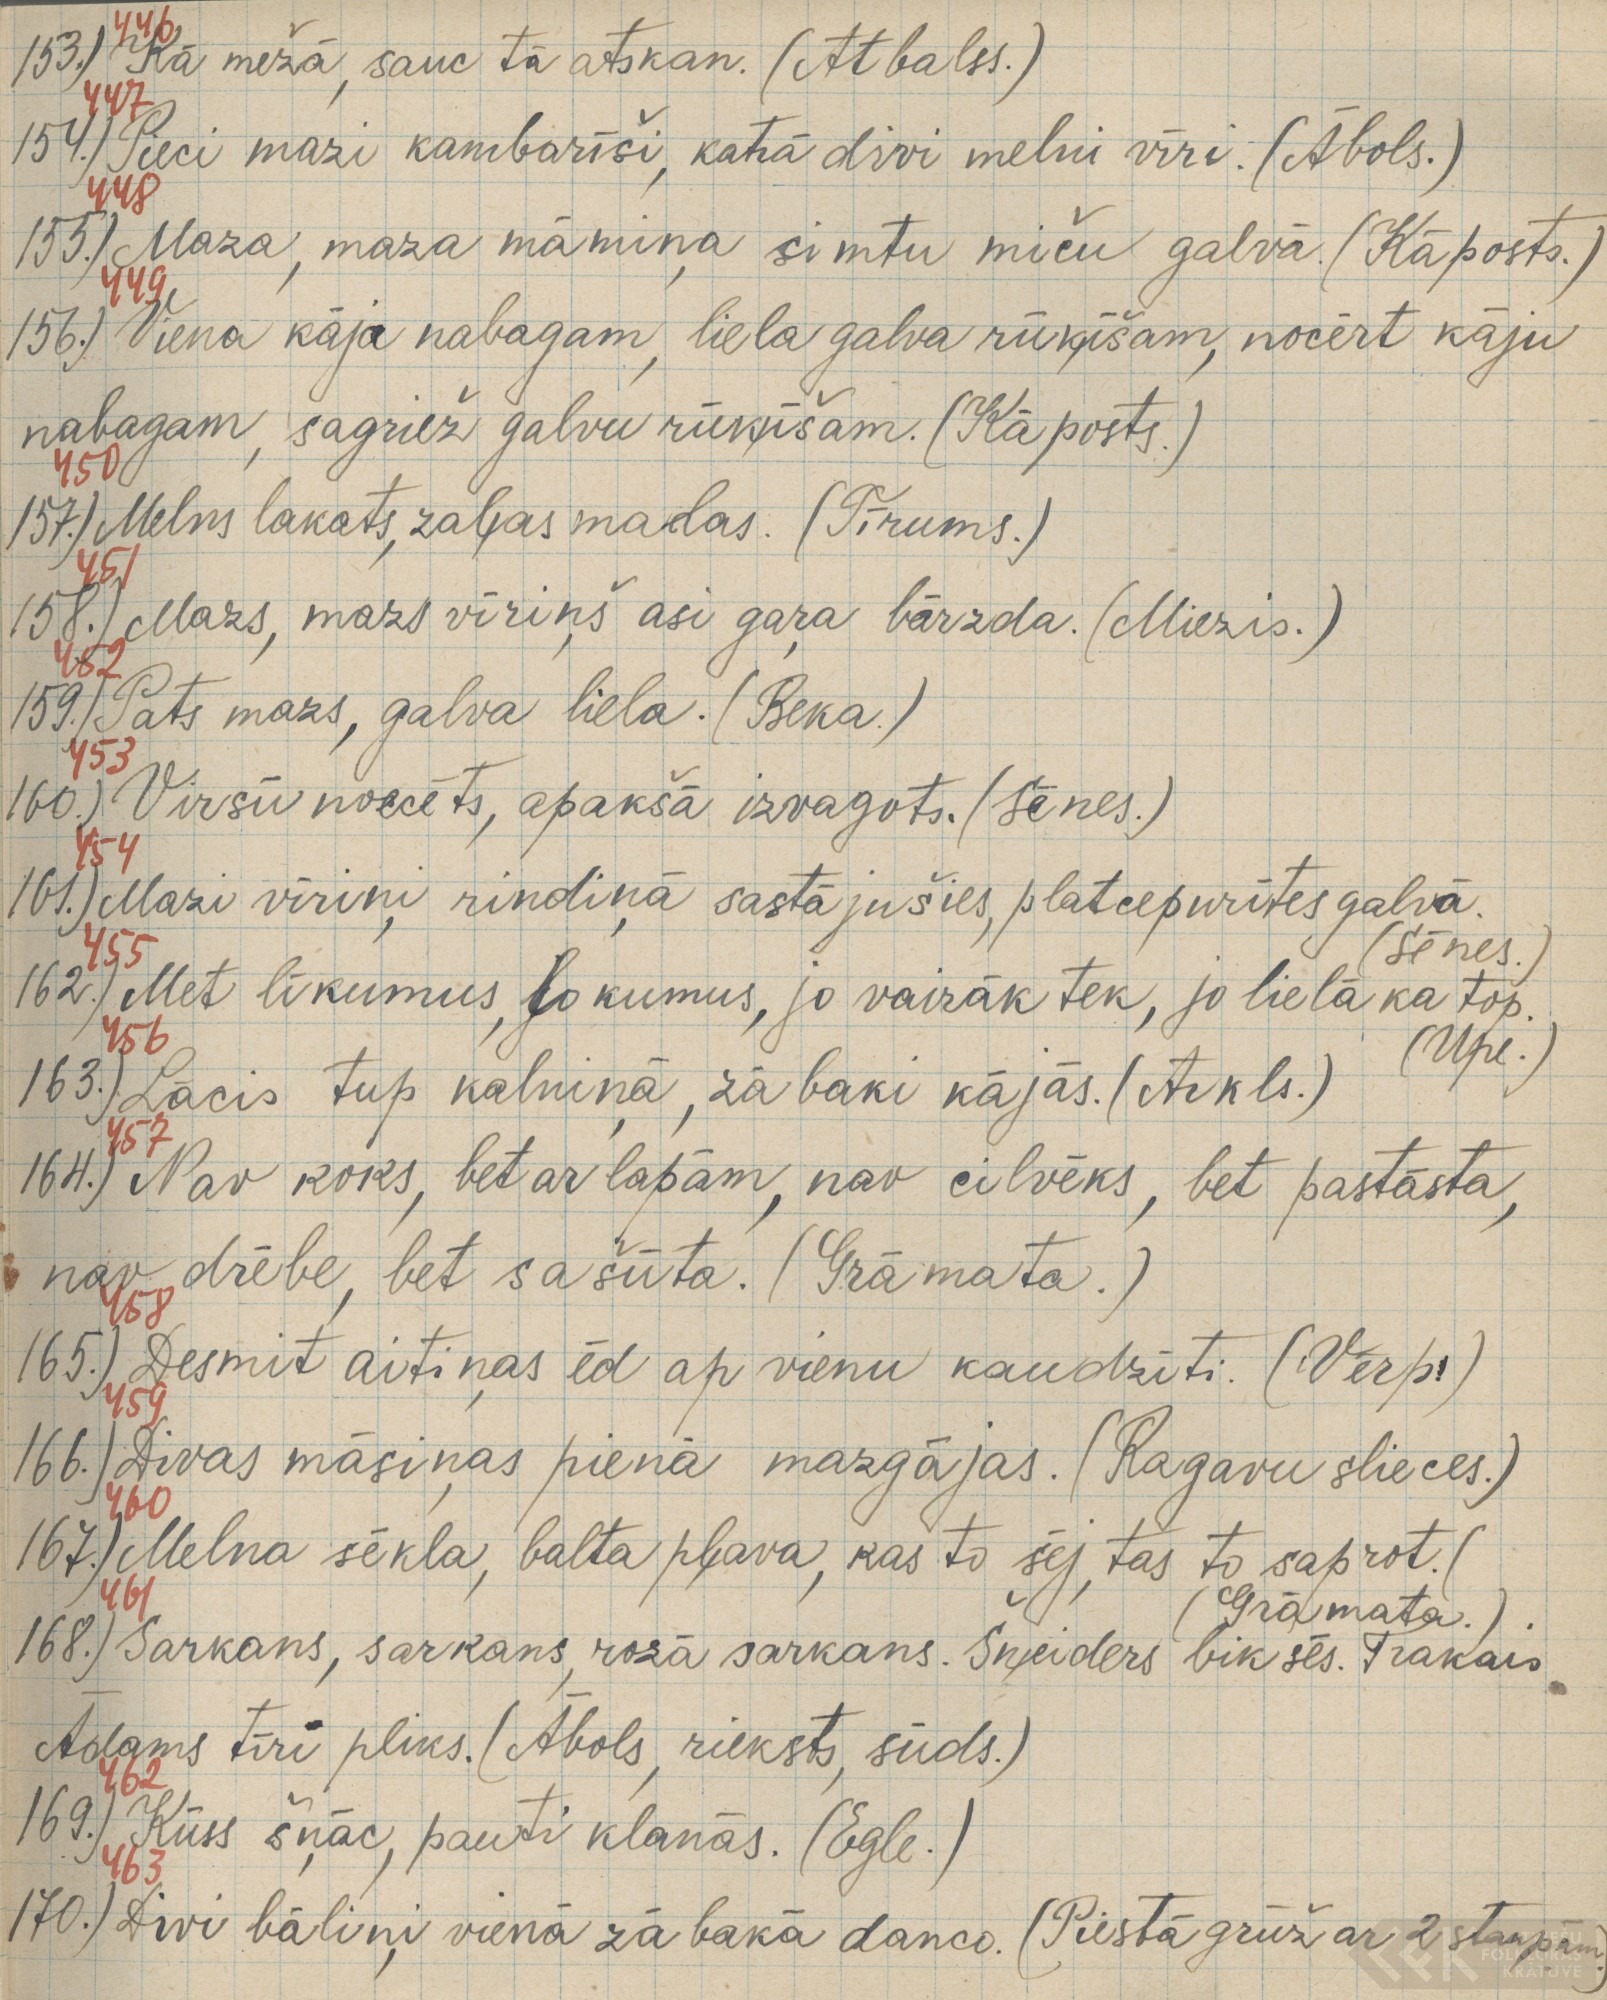 446
153.) Kā mežā, sauc tā atskan. (Atbalss.)
447
154.) Pieci mazi kambarīši, katrā divi melni vīri. (Ābols.)
448
155.) Maza, maza māmiņa simtu miču galvā. (Kāposts.)
449
156.) Viena kāja nabagam, liela galva rūķīšam, nocērt kāju
nabagam, sagriež galvu rūķīšam. (Kāposts.)
450
157.) Melns lakats, zaļas malas. (Tīrums.)
451
158.) Mazs, mazs vīriņš asi gaŗa bārzda. (Miezis.)
452
159.) Pats mazs, galva liela. (Beka.)
453
160.) Virsū noecēts, apakšā izvagots. (Sēnes.)
454
161.) Mazi vīriņi rindiņā sastājušies, platcepurītes galvā.
(Sēnes.)
455
162.) Met līkumus, lokumus, jo vairāk tek, jo lielāka top.
(Upe.)
456
163.) Lācis tup kalniņā, zābaki kājās. (Arkls.)
457
164.) Nav koks, bet ar lapām, nav cilvēks, bet pastāsta,
nav drēbe, bet sašūta. (Grāmata.)
458
165.) Desmit aitiņas ēd ap vienu kaudzīti. (Vērpj)
459
166.) Divas māsiņas pienā mazgājas. (Ragavu slieces.)
460
167.) Melna sēkla, balta pļava, kas to sēj, tas to saprot. (
(Grāmata.)
461
168.) Sarkans, sarkans, rozā sarkans. Šņeiders biksēs. Trakais
Ādams tīri pliks. (Ābols, rieksts, sūds.)
462
169.) Kūss šņāc, pauti klanās. (Egle.)
463
170.) Divi bāliņi vienā zābakā danco. (Piestā grūž ar 2 stampām.)